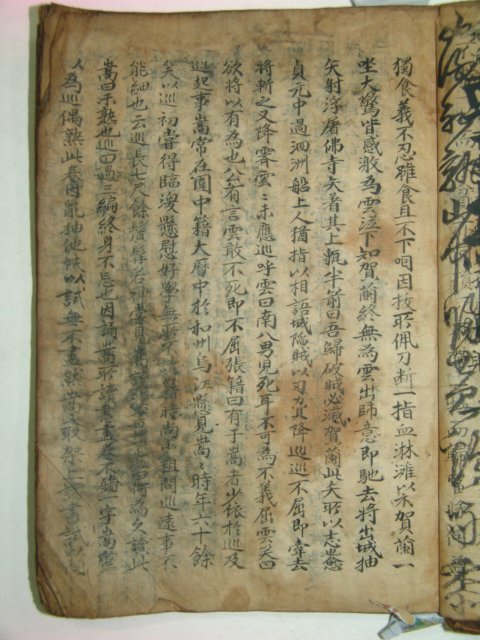 獨食義不忍雖食且不下咽因拔所佩刀斷一指血淋漓以示賀蘭一
坐大驚皆感激為雲泣下知賀蘭終無為雲出師意即馳去將出城抽
矢射浮屠佛寺矢著其上甎半前曰吾歸破賊必滅賀蘭此矢所以志愈
貞元中過泗洲船上人猶指以相語城陷賊以刃脅降巡巡不屈即牽去
將斬之又降霽雲〻未應巡呼雲曰南八男兒死耳不可為不義屈雲笑曰
欲將以有為也公有言雲敢不死即不屈張籍曰有于嵩者少依於巡及
巡起事嵩常在圍中籍大曆中於和州烏江懸見嵩〻時年六十餘
矣以巡初嘗得臨渙懸慰好學無所不讀籍時尚小粗問巡遠事不
能細也云巡長七尺餘鬚髯若神嘗見嵩讀漢書謂嵩曰何為久讀此
嵩曰未熟也巡曰過三編終身不忘也因誦嵩所讀書盡卷不錯一字嵩驚
以為巡偶熟此卷因亂抽他帙以試無不盡然嵩又取架上諸書試以